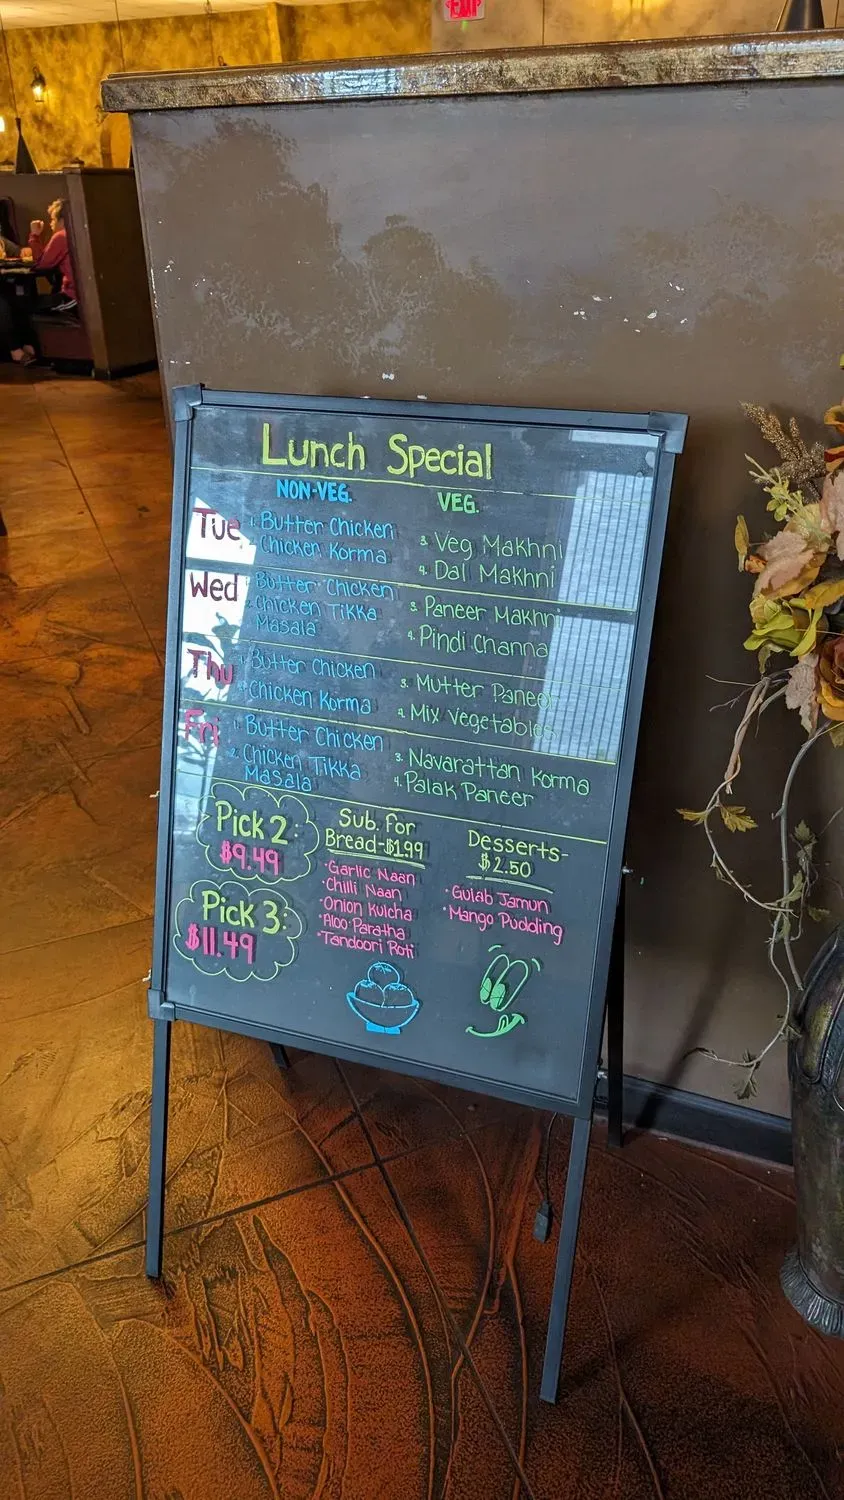 EXIT
Lunch Special
NON-VEG.
VEG.
Tue
1. Butter Chicken
Chicken Korma
3. Veg Makhni
4. Dal Makhni
Wed
Butter Chicken
Chicken Tikka
Masala
3. Paneer Makhni
4. Pindi Channa
Thu
Butter Chicken
Chicken Korma
3. Mutter Paneer
4. Mix Vegetables
Fri
1. Butter Chicken
2. Chicken Tikka
Masala
3. Navarattan Korma
4. Palak Paneer
Pick 2:
$9.49
Pick 3:
$11.49
Sub. for
Bread-$1.99
• Garlic Naan
• Chilli Naan
• Onion Kulcha
• Aloo Paratha
• Tandoori Roti
Desserts-
$2.50
• Gulab Jamun
• Mango Pudding